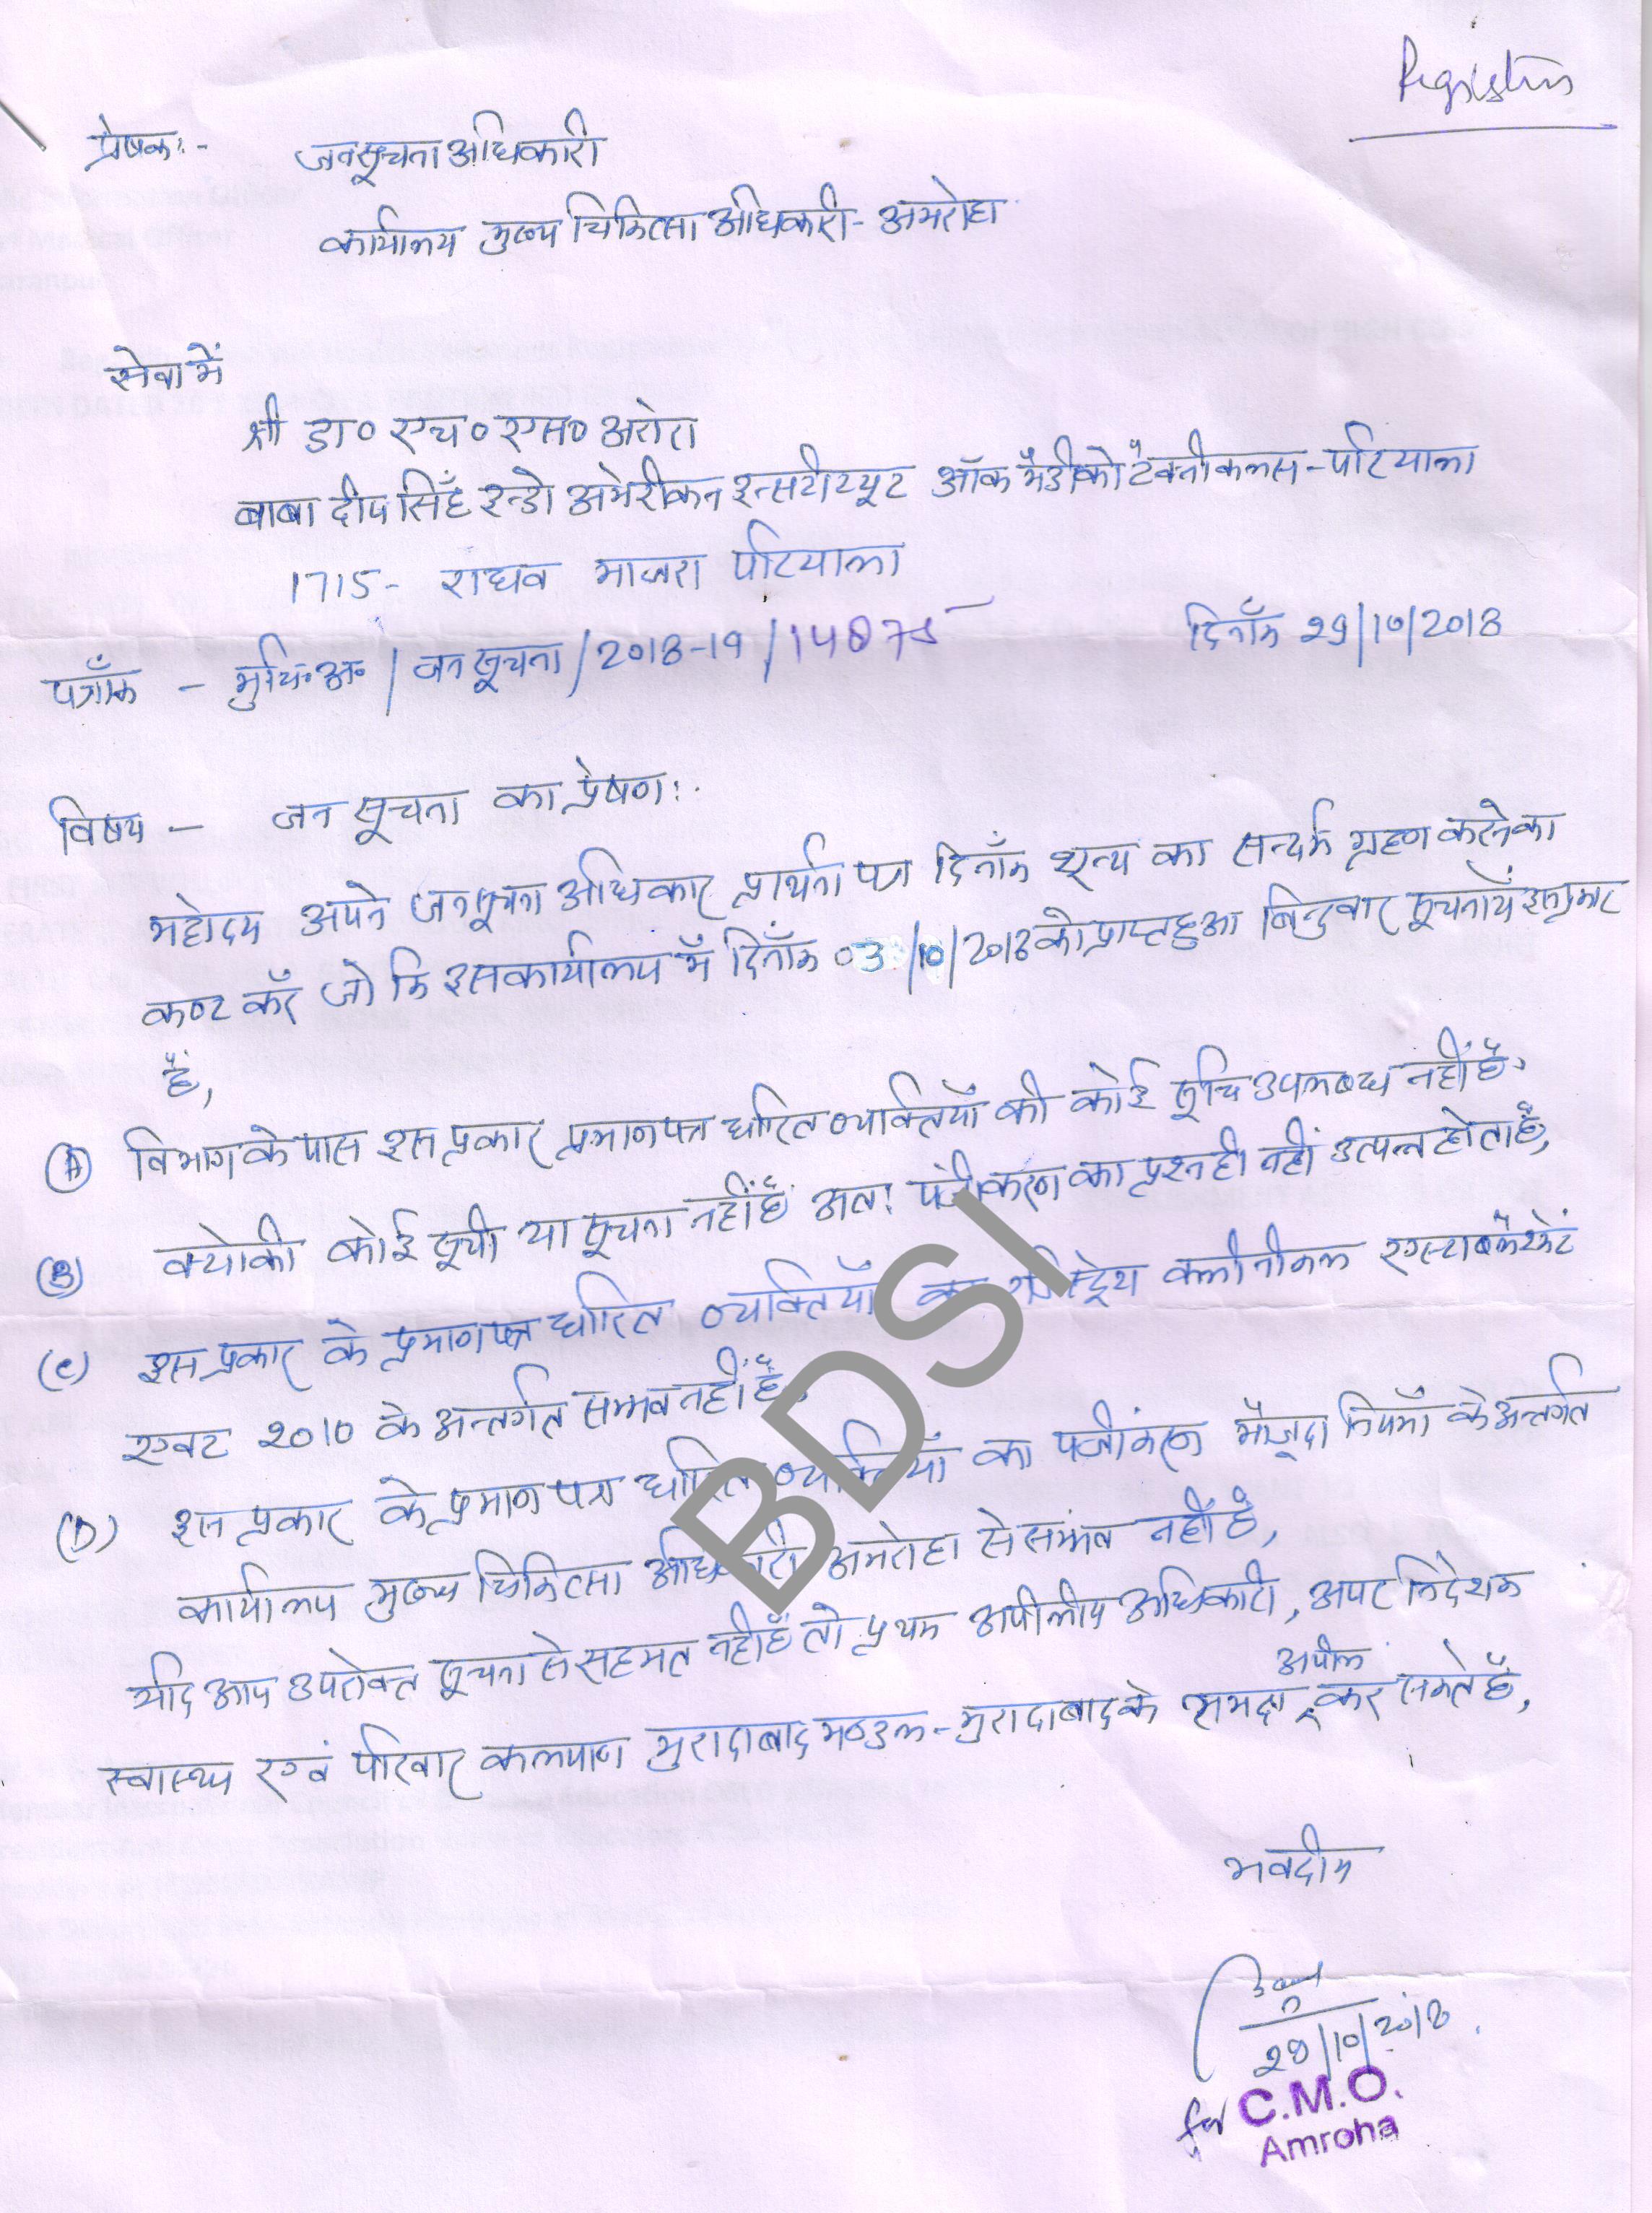 प्रेषक:- जनसूचना अधिकारी
कार्यालय मुख्य चिकित्सा अधिकारी- अमरोहा
सेवा में
श्री डा० एच० एस० अरोरा
बाबा दीप सिँह इन्डो अमेरीकन इन्सटीटयूट ऑफ मैडीको टैक्नीकलस-पटियाला
1715- राघव माजरा पटियाला
पत्राँक - मु.चि.अ. / जन सूचना / 2018-19 / 14875 दिनाँक 29/10/2018
विषय - जन सूचना का प्रेषण:.
महोदय अपने जनसूचना अधिकार प्रार्थना पत्र दिनाँक शून्य का सन्दर्भ ग्रहण करने का
कष्ट करेँ जो कि इस कार्यालय मेँ दिनाँक 03/10/2018 को प्राप्त हुआ बिन्दुवार सूचनायें
हैं,
(A) विभाग के पास इस प्रकार प्रमाण पत्र धारित व्यक्तियोँ की कोई सूचि उपलब्ध नहीं है,
(B) क्योकी कोई सूची या सूचना नहीं है अत: पंजीकरण का प्रश्न ही नहीं उत्पन्न होता है,
(C) इस प्रकार के प्रमाण पत्र धारित व्यक्तियोँ का क्लीनीकल
एक्ट 2010 के अन्तर्गत सम्भव नहीं है,
(D) इस प्रकार के प्रमाण पत्र धारित व्यक्तियोँ का पंजीकरण मौजूदा नियमोँ के अन्तर्गत
कार्यालय मुख्य चिकित्सा अधिकारी अमरोहा से सम्भव नहीं है,
यदि आप उपरोक्त सूचना से सहमत नहीं हैँ तो प्रथम अपीलीय अधिकारी, अपर निदेशक
स्वास्थ्य एवं परिवार कल्याण मुरादाबाद मण्डल-मुरादाबाद के समक्ष अपील कर सकते हैं,
भवदीय
29/10/2018
for C.M.O.
Amroha
BDSI